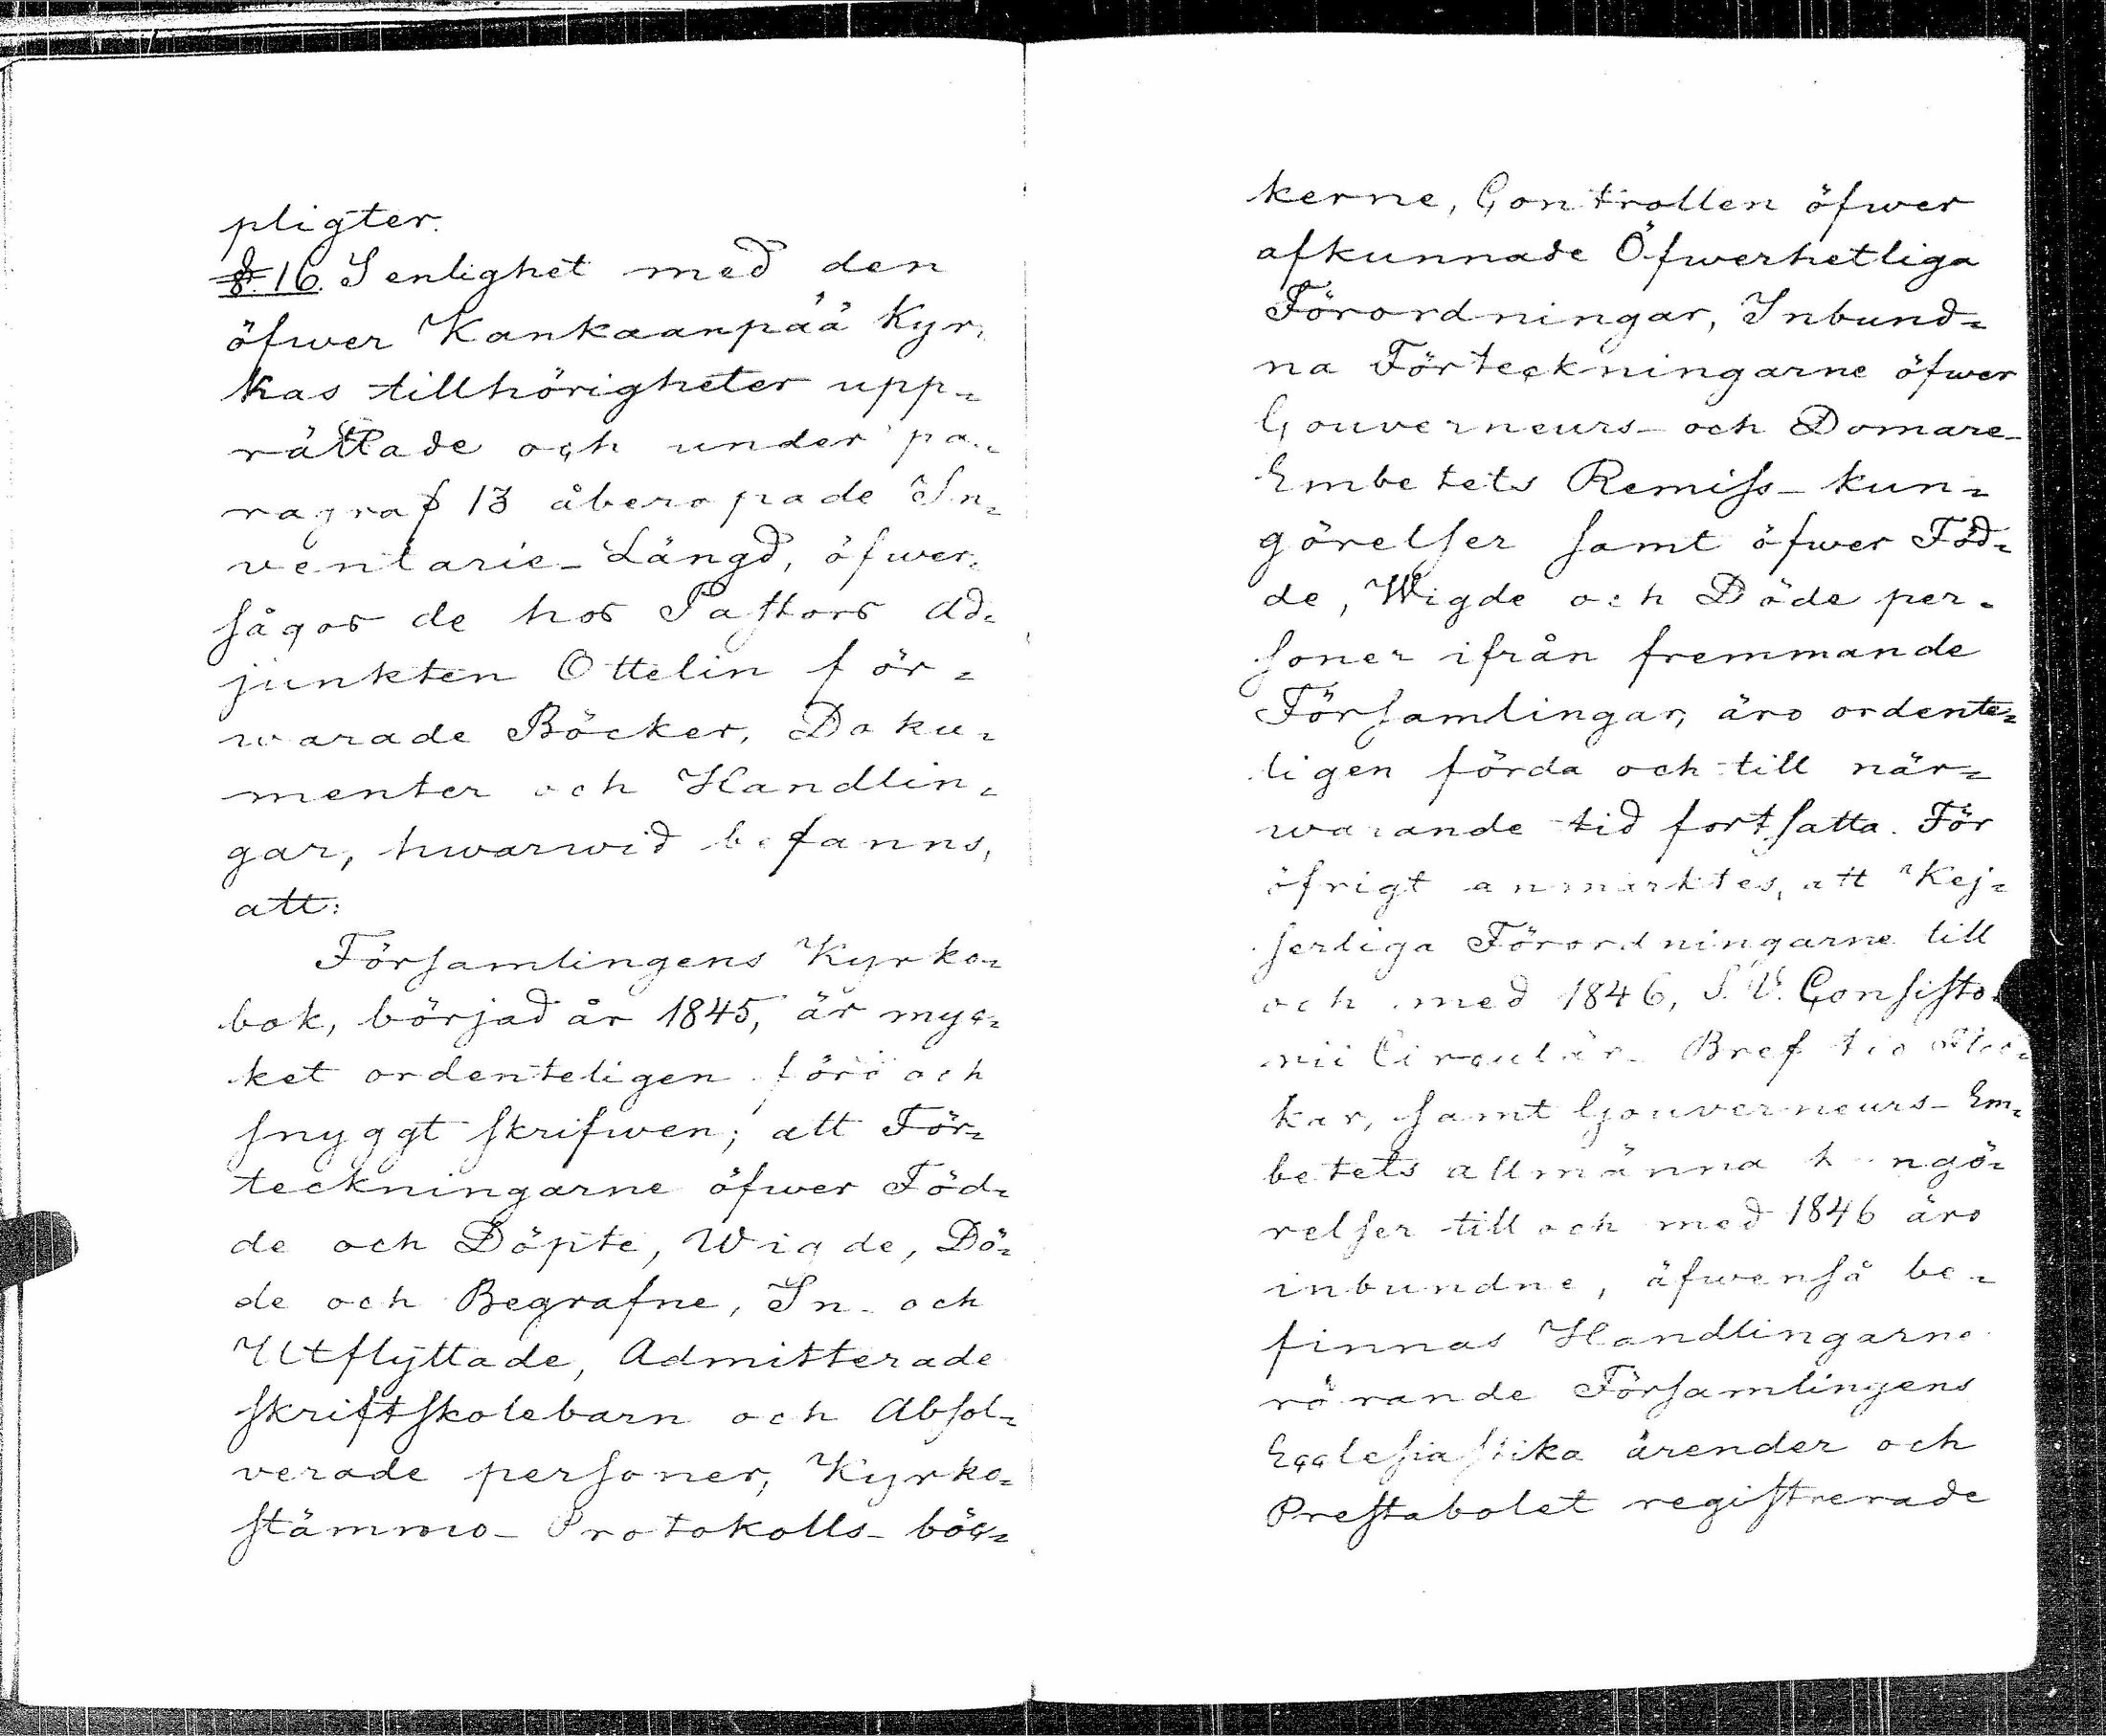 pligter.
§. 16. I enlighet med den
öfwer Kankaanpää Kyr-
kas tillhörigheter upp-
rättade och under pa-
ragraf 13 åberopade In-
ventarie-Längd, öfwer-
sågos de hos Pastors Ad-
junkten Ottelin för-
warade Böcker, Doku-
menter och Handlin-
gar, hwarwid befanns,
att:
Församlingens Kyrko-
bok, börjad år 1845, är myc-
ket ordenteligen förd och
snyggt skrifwen; att För-
teckningarne öfwer Föd-
de och Döpte, Wigde, Dö-
de och Begrafne, In- och
Utflyttade, Admitterade
skriftskolebarn och Absol-
verade personer, Kyrko-
stämmo-Protokolls-böc-
kerne, Controllen öfwer
afkunnade Öfwerhetliga
Förordningar, Inbund-
na Förteckningarne öfwer
Gouverneurs- och Domare-
Embetets Remiss-kun-
görelser samt öfwer Föd-
de, Wigde och Döde per-
soner ifrån fremmande
Församlingar, äro ordente-
ligen förda och till när-
warande tid fortsatta. För
öfrigt anmärktes, att Kej-
serliga Förordningarne till
och med 1846, S. V. Consisto-
rii Circulär-Bref
kar, samt Gouverneurs-Em-
betets allmänna kungö-
relser till och med 1846 äro
inbundne, äfwenså be-
finnas Handlingarne
rörande Församlingens
Ecclesiastika ärender och
Prestabolet registrerade